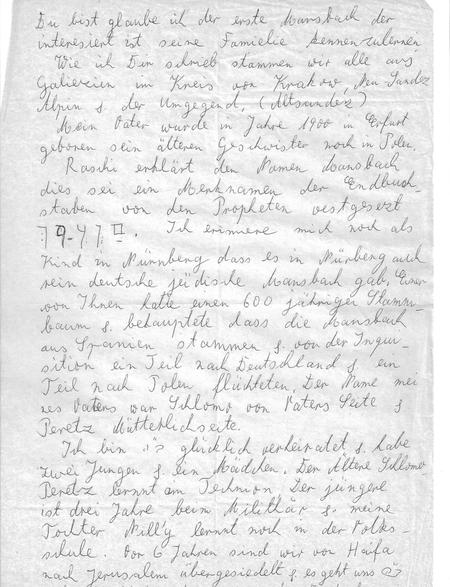 Du bist glaube ich der erste Mansbach der
interesiert ist seine Familie kennenzulernen
Wie ich Dir schrieb stammen wir alle aus
Galiezien im Kreis von Krakow, Neu Sandez
Alpin & der Umgegend, (Altsandez)
Mein Vater wurde in Jahre 1900 in Erfurt
geboren sein älteren Geschwister noch in Polen.
Raschi erklärt den Namen Mansbach
dies sei ein Merknamen der Endbuch-
staben von den Propheten vestgesezt
Ich erinnere mich noch als
Kind in Nürnberg dass es in Nürberg auch
rein deutsche jüdische Mansbach gab. Einer
von Ihnen hatte einen 600 jährigen Stamm-
baum & behauptete dass die Mansbach
aus Spanien stammen & von der Inqui-
sition ein Teil nach Deutschland & ein
Teil nach Polen flüchteten. Der Name mei
nes Vaters war Schlomo von Vaters Seite &
Peretz Mütterlichseite.
Ich bin glücklich verheiratet & habe
zwei Jungen & ein Mädchen. Der Ältere Schlomo
Peretz lernnt am Technion. Der jüngere
ist drei Jahre beim Milithär & meine
Tochter Nilly lernnt noch in der Volks-
schule. Vor 6 Jahren sind wir von Haifa
nach Jerusalem übergesiedelt & es geht uns